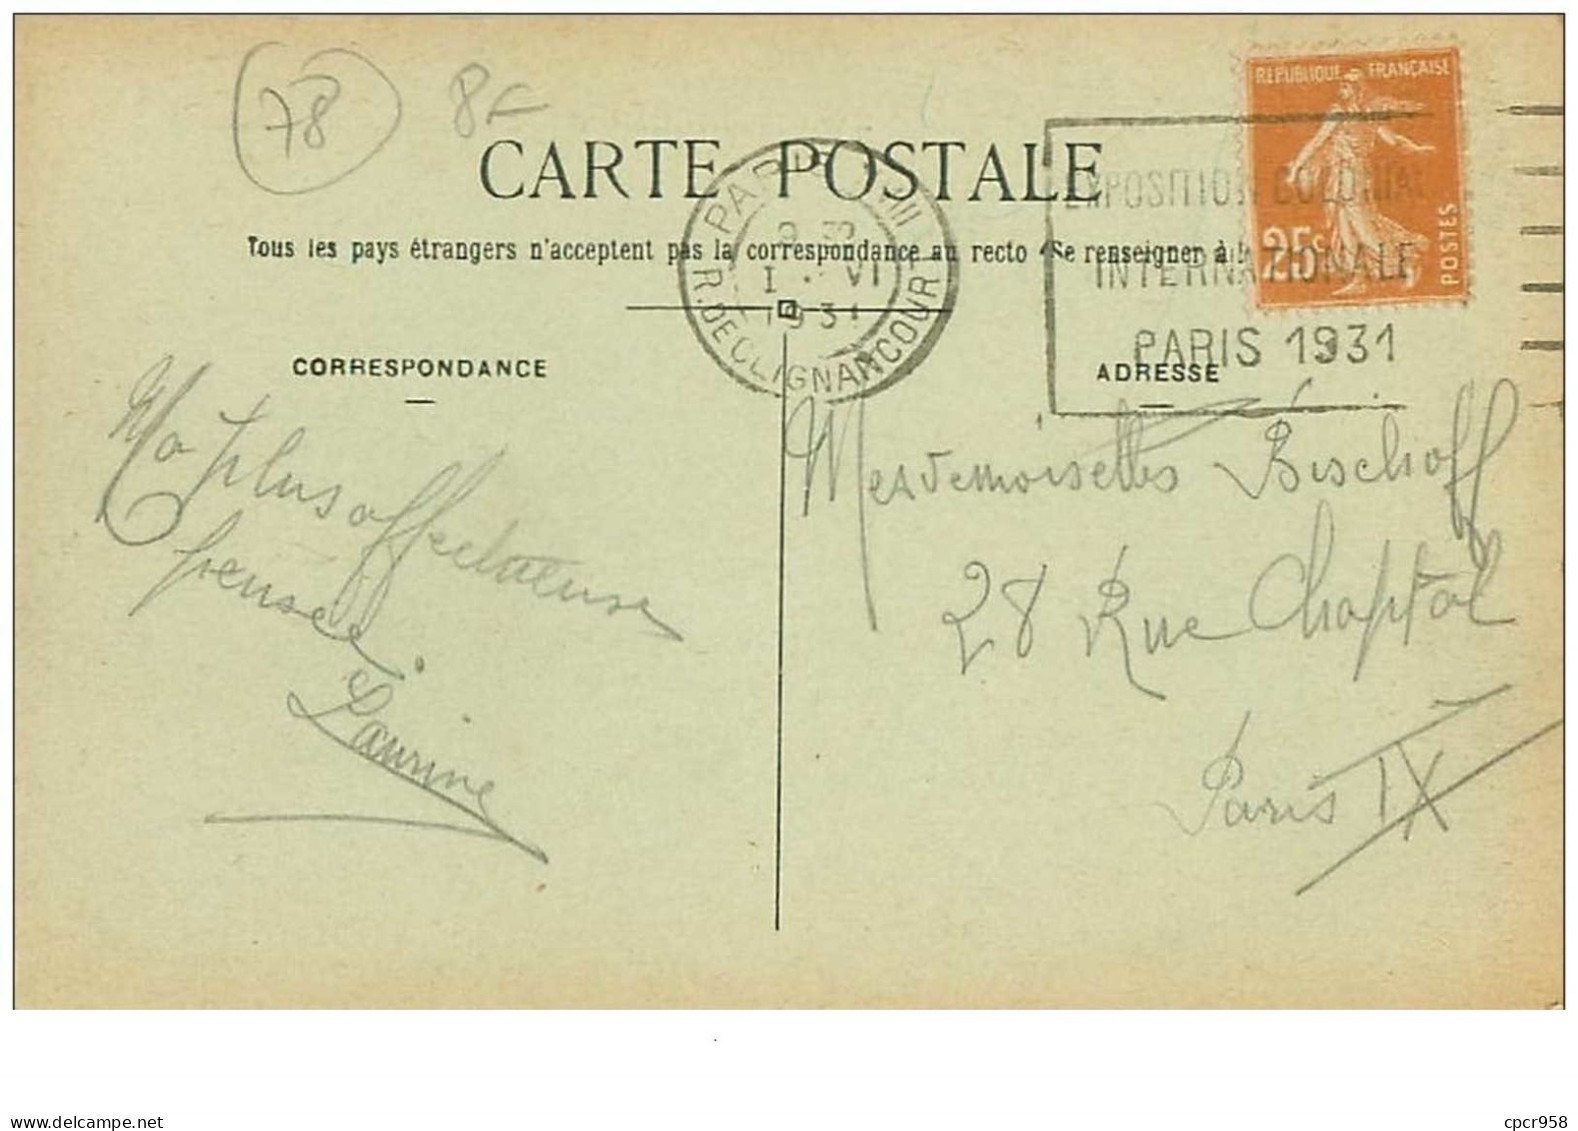 78
8F
CARTE POSTALE
Tous les pays étrangers n'acceptent pas la correspondance au recto (Se renseigner à la
CORRESPONDANCE
ADRESSE
REPUBLIQUE FRANÇAISE
25c
POSTES
PARIS XVIII
I VI
1931
R. DE CLIGNANCOURT
EXPOSITION COLONIALE
INTERNATIONALE
PARIS 1931
Ma plus affectueuse
pensée.
Laurine
Mesdemoiselles Bischoff
28 Rue Chaptal
Paris IX
www.delcampe.net
cpcr958